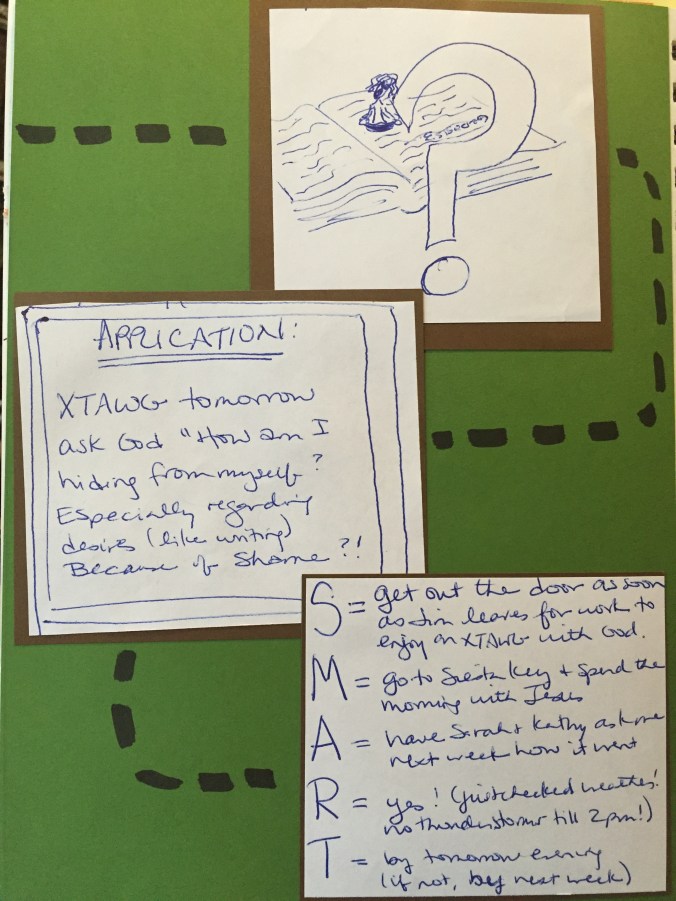 APPLICATION:
XTAWG tomorrow
ask God "How am I
hiding from myself?
Especially regarding
desires (like writing)
Because of Shame?!
S = get out the door as soon
as Jim leaves for work to
enjoy an XTAWG with God.
M = go to Siesta Key + spend the
morning with Jesus
A = have Sarah + Kathy ask me
next week how it went
R = yes! (just checked weather!
no thunderstorms till 2pm!)
T = by tomorrow evening
(if not, by next week)